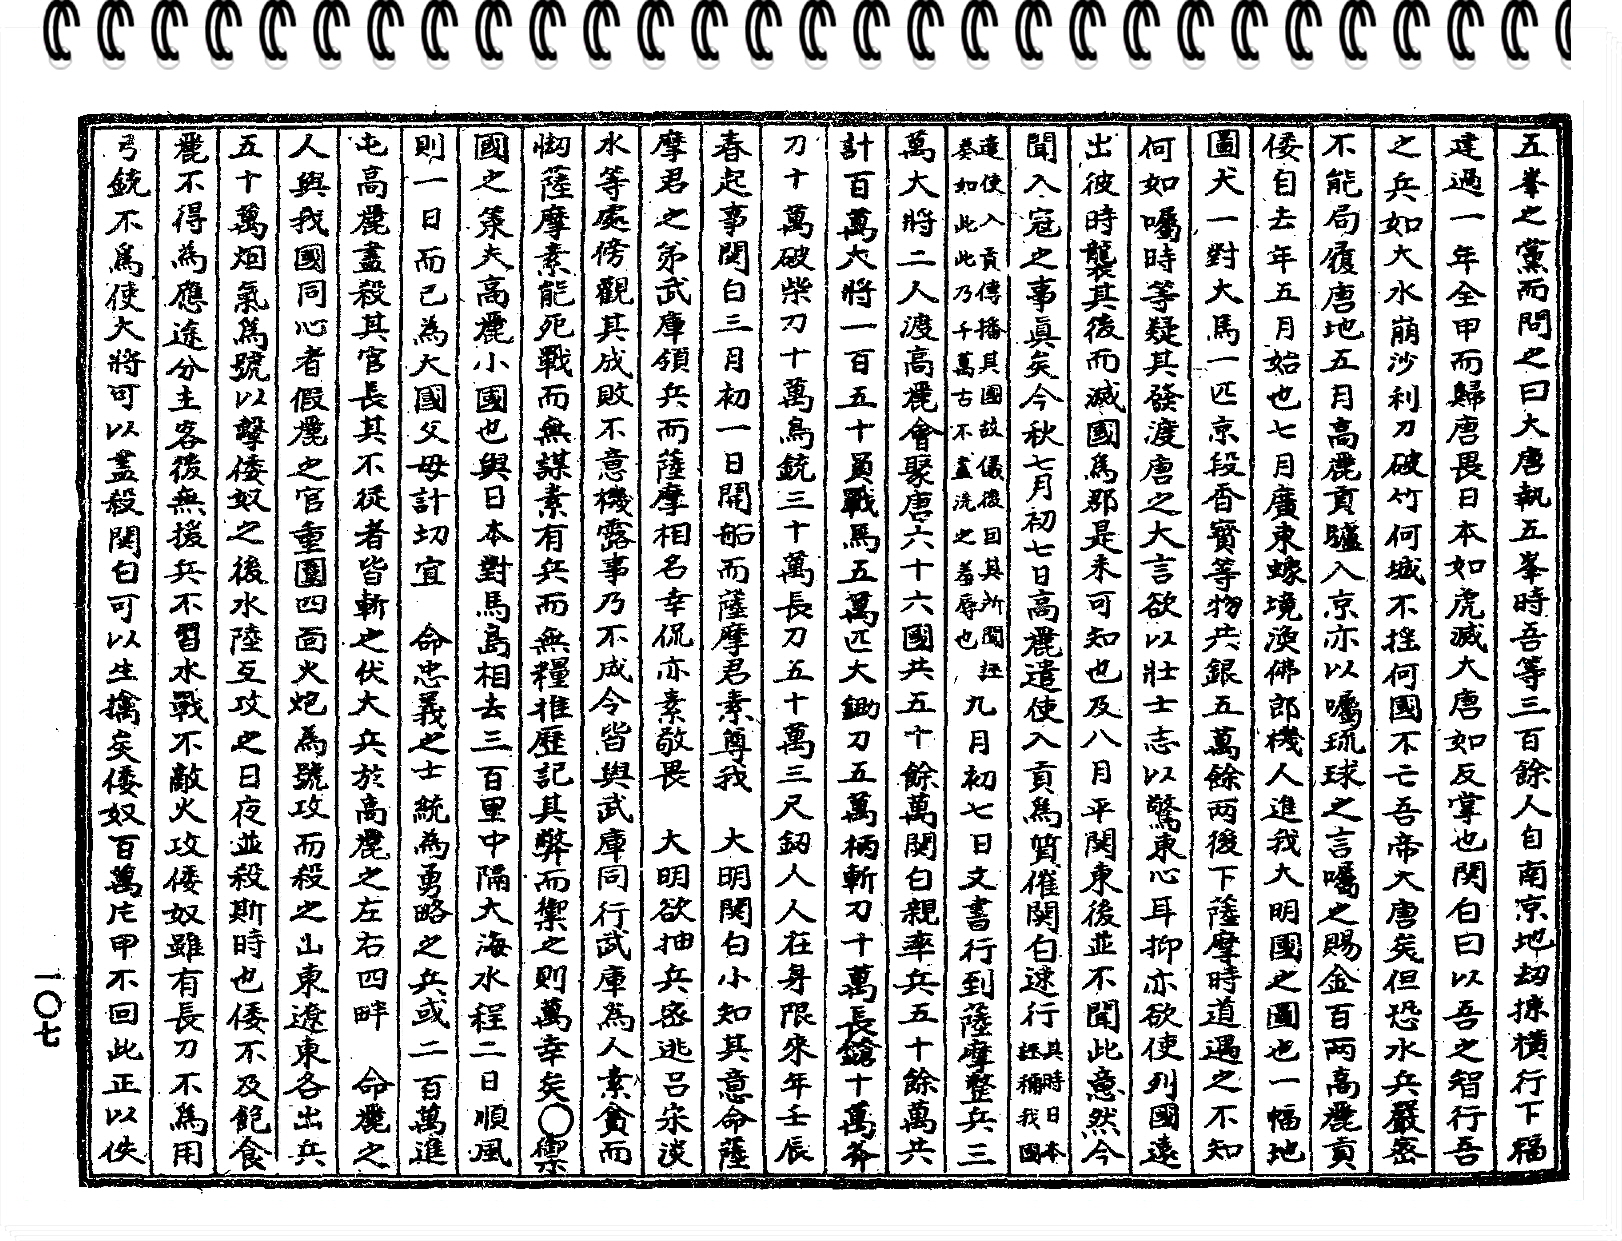 五峯之黨而問之曰大唐執五峯時吾等三百餘人自南京地劫掠橫行下福
建過一年全甲而歸唐畏日本如虎滅大唐如反掌也関白曰以吾之智行吾
之兵如大水崩沙利刀破竹何城不摧何國不亡吾帝大唐矣但恐水兵嚴密
不能局履唐地五月高麗貢驢入京亦以囑琉球之言囑之賜金百兩高麗貢
倭自去年五月始也七月廣東蠔境澳佛郎機人進我大明國之圖也一幅地
圖犬一對大馬一匹京段香寶等物共銀五萬餘兩後下薩摩時道遇之不知
何如囑時等疑其發渡唐之大言欲以壯士志以驚東心耳抑亦欲使列國遠
出彼時襲其後而滅國爲郡是未可知也及八月平関東後並不聞此意然今
聞入寇之事眞矣今秋七月初七日高麗遣使入貢爲質催関白速行其時日本誑稱我國
遣使入貢傳播其國故儀後回其所聞誑婁如此此乃千萬古不盡洗之羞辱也九月初七日文書行到薩摩整兵三
萬大將二人渡高麗會聚唐六十六國共五十餘萬関白親率兵五十餘萬共
計百萬大將一百五十員戰馬五萬匹大鋤刀五萬柄斬刀十萬長鎗十萬斧
刀十萬破柴刀十萬鳥銃三十萬長刀五十萬三尺釰人人在身限來年壬辰
春起事関白三月初一日開船而薩摩君素尊我　大明関白小知其意命薩
摩君之弟武庫領兵而薩摩相名幸侃亦素敬畏　大明欲抽兵密逃呂宋淡
水等處傍觀其成敗不意機露事乃不成今皆與武庫同行武庫爲人素貪而
懶薩摩素能死戰而無謀素有兵而無糧推歷記其弊而禦之則萬幸矣〇禦
國之策夫高麗小國也與日本對馬島相去三百里中隔大海水程二日順風
則一日而已為大國父母計切宜　命忠義之士統為勇略之兵或二百萬進
屯高麗盡殺其官長其不從者皆斬之伏大兵於高麗之左右四畔　命麗之
人與我國同心者假麗之官重圍四面火炮為號攻而殺之出東遼東各出兵
五十萬烟氣爲號以擊倭奴之後水陸互攻之日夜並殺斯時也倭不及飽食
麗不得為應途分主客後無援兵不習水戰不敵火攻倭奴雖有長刀不爲用
弓銃不爲使大將可以盡殺関白可以生擒矣倭奴百萬片甲不回此正以佚
一〇七